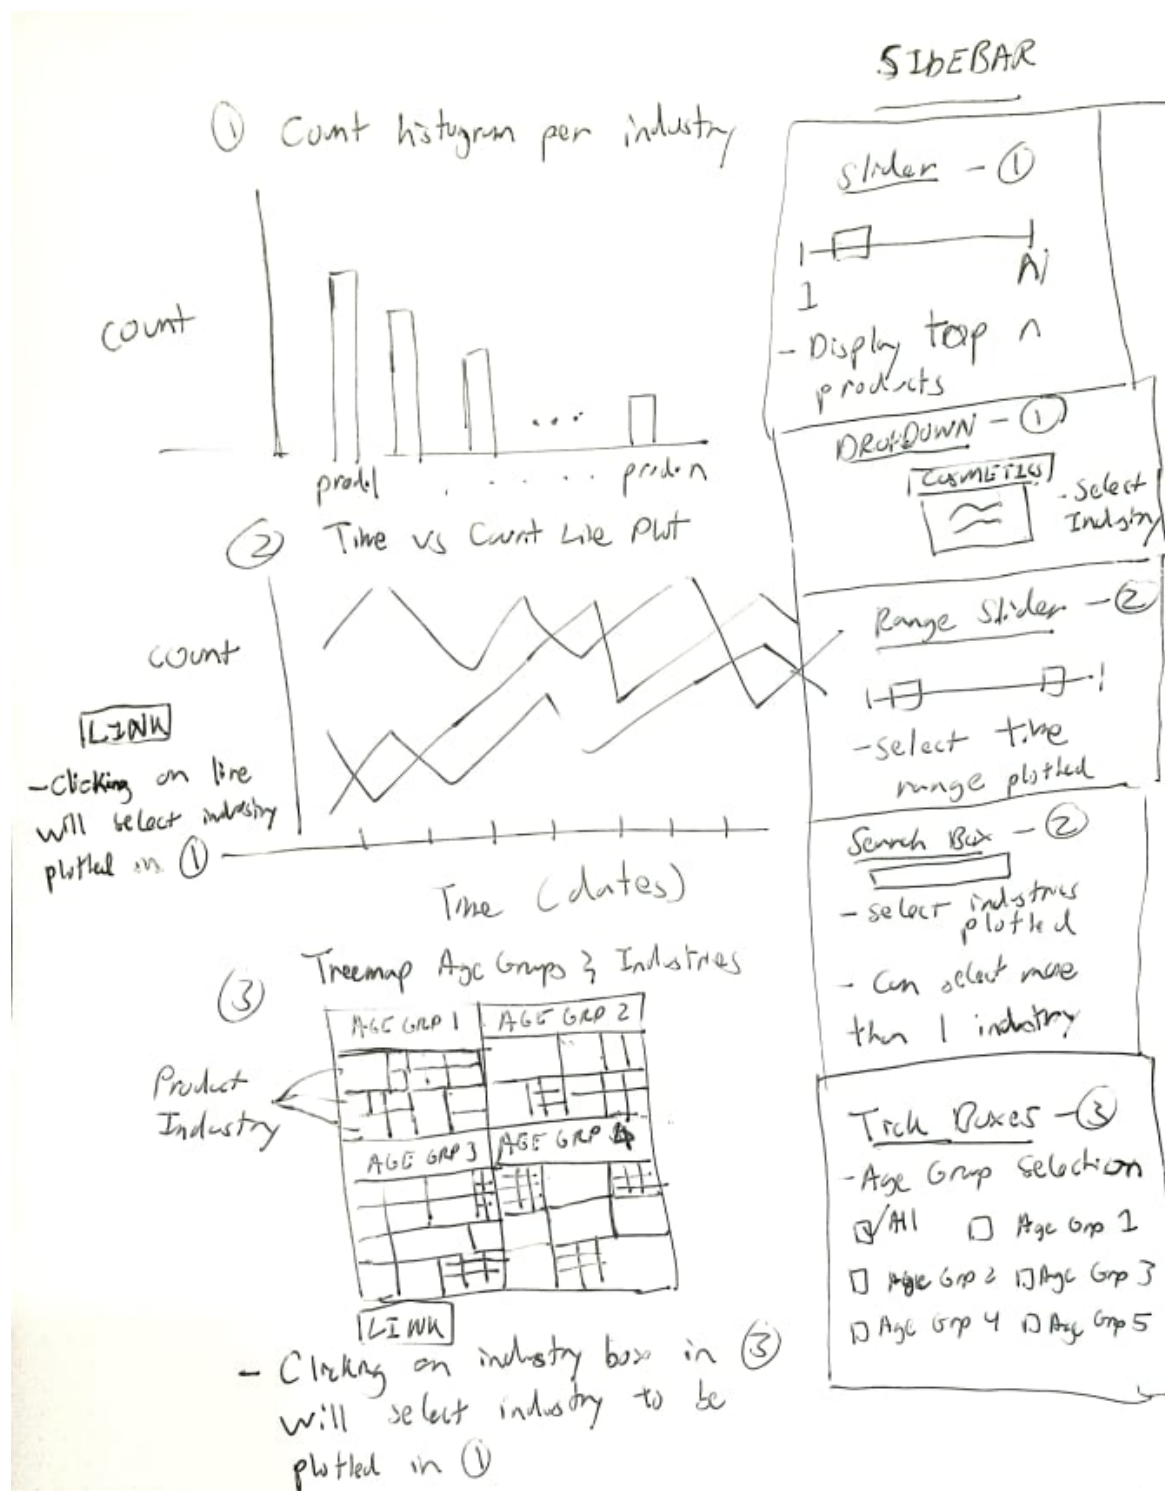 SIDEBAR
① Count histogram per industry
Count
prod1 . . . . . prod n
② Time vs Count Line Plot
count
LINK
- Clicking on line
will select industry
plotted in ①
Time (dates)
③ Treemap Age Groups & Industries
AGE GRP 1
AGE GRP 2
AGE GRP 3
AGE GRP 4
Product
Industry
LINK
- Clicking on industry box in ③
will select industry to be
plotted in ①
Slider - ①
1
- Display top n
products
DROPDOWN - ①
COSMETICS
- Select
Industry
Range Slider - ②
- select time
range plotted
Search Box - ②
- select industries
plotted
- Can select more
than 1 industry
Tick Boxes - ③
- Age Group Selection
All Age Grp 1
Age Grp 2 Age Grp 3
Age Grp 4 Age Grp 5